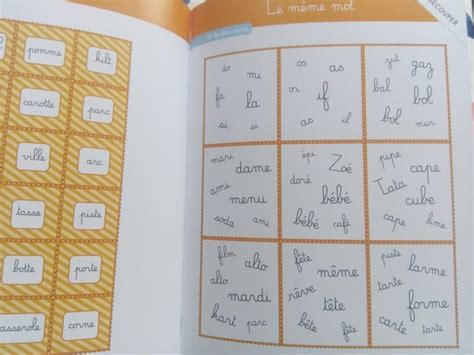 pomme kilt
carotte parc
ville arc
tasse piste
botte porte
asserole corne
Le même mot
DÉCOUPER
do
mi
fa
la
si si
os as
or
if
as il
zut gaz
bal
bol
bol mur
mari
dame
ami
menu
soda ami
épi
Zoé
doré
bébé
bébé café
pipe
cape
Tata
cube
cape lime
film
alto
alto
mardi
kart parc
fête
même
rêve
tête
bête fée
piste
larme
tarte
forme
carte tarte